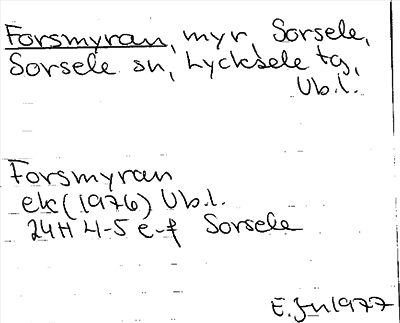 Forsmyran, myr Sorsele,
Sorsele sn, Lycksele tg,
Vb.l.
Forsmyran
ek (1976) Vb.l.
24H 4-5 e-f Sorsele
E.Jn 1977